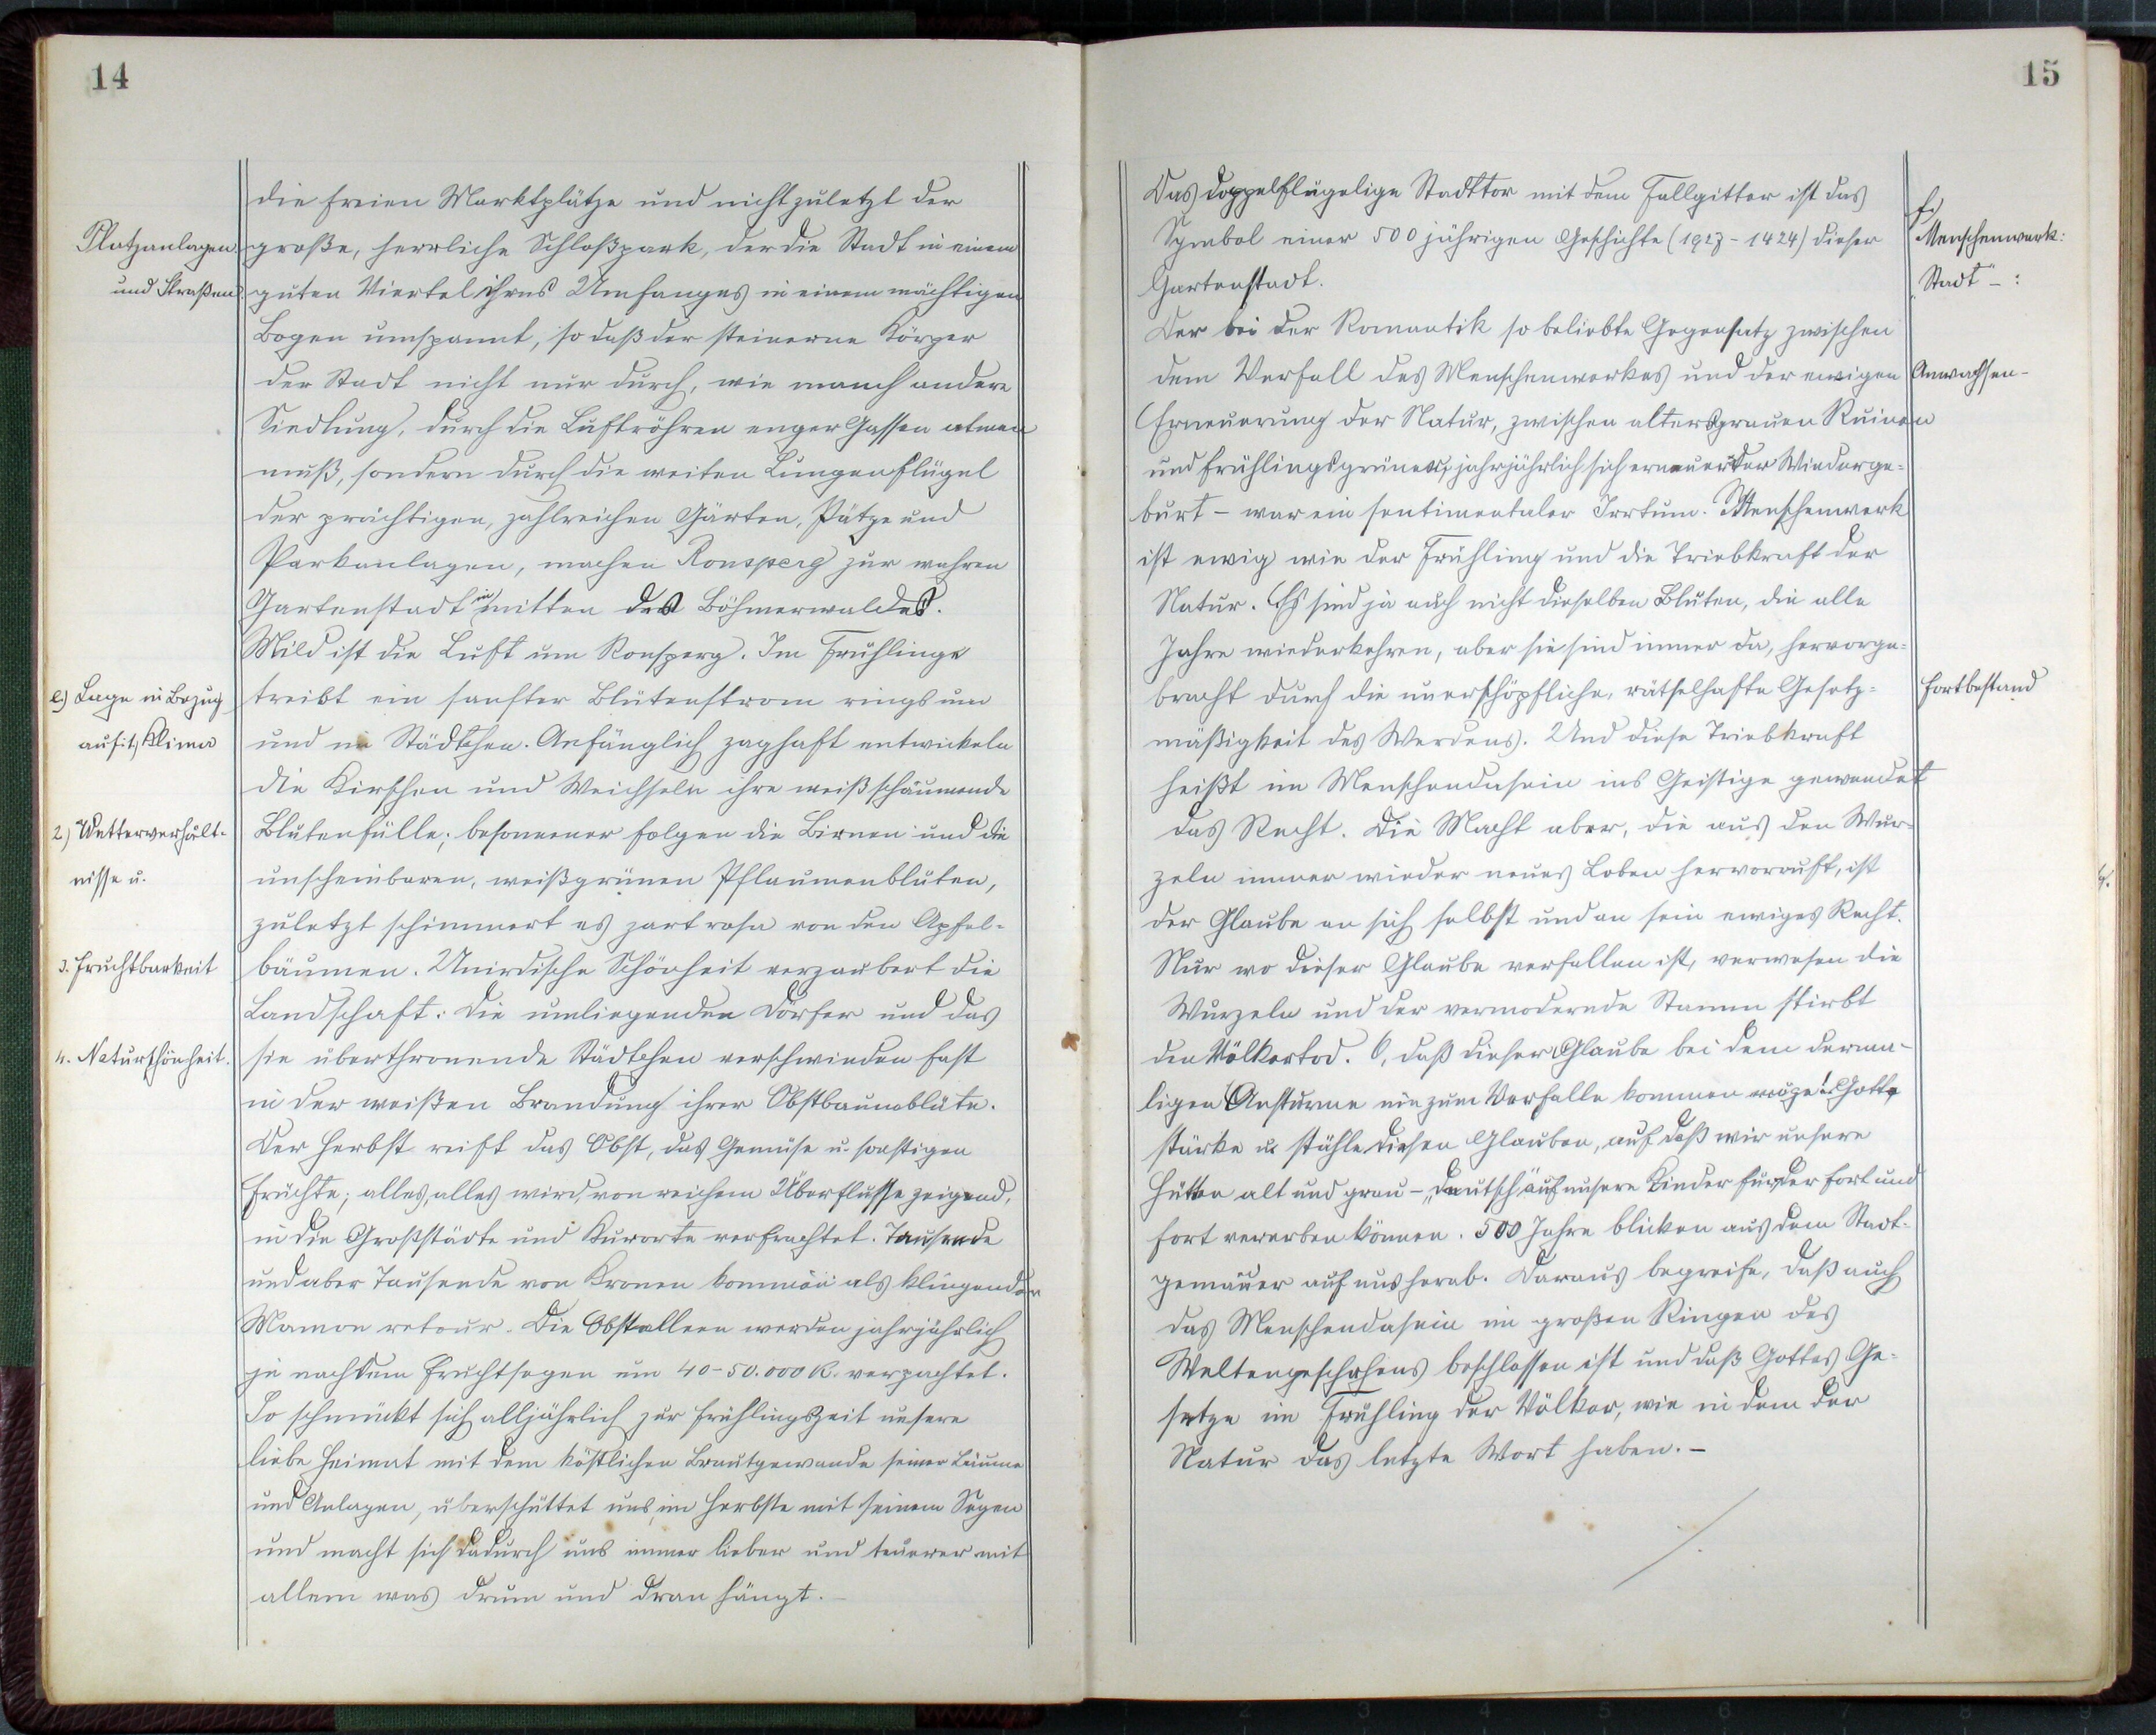 14
die freien Marktplätze und nicht zuletzt der
Platzanlagen
große, herrliche Schloßpark, der die Stadt in einem
und Straßen
guten Viertel ihres Umfanges in einem mächtigen
Bogen umspannt, so daß der steinerne Körper
der Stadt nicht nur durch, wie manch andere
Siedlung, durch die Luftröhren enger Gassen atmen
muß, sondern durch die weiten Lungenflügel
der prächtigen, zahlreichen Gärten, Pätze und
Parkanlagen, machen Ronsperg zur wahren
Gartenstadt inmitten des Böhmerwaldes.
Mild ist die Luft um Ronsperg. Im Frühlinge
e) Lage in Bezug
treibt ein sanfter Blütenstrom rings um
auf 1, Klima
und im Städtchen. Anfänglich zaghaft entwickeln
die Kirschen und Weichseln ihre weißschäumende
2) Wetterverhält-
Blütenfülle; besonnener folgen die Birnen und die
nisse u.
unscheinbaren, weißgrünen Pflaumenblüten,
zuletzt schimmert es zart rosa von den Apfel-
3. Fruchtbarkeit
bäumen. Unirdische Schönheit verzaubert die
Landschaft: die umliegenden Dörfer und das
4. Naturschönheit.
sie überthronende Städtchen verschwinden fast
in der weißen Brandung ihrer Obstbaumblüte.
Der Herbst reift das Obst, das Gemüse u. sonstigen
Früchte; alles, alles wird, von reichem Überflusse zeigend,
in die Großstädte und Kurorte verfrachtet. Tausende
und aber Tausende von Kronen kommen als klingender
Mamon retour. Die Obstalleen werden jahrjährlich
je nach dem Fruchtsegen um 40-50.000 K. verpachtet.
So schmückt sich alljährlich zur Frühlingszeit unsere
liebe Heimat mit dem köstlichen Brautgewande seiner Bäume
und Anlagen, überschüttet uns, im Herbste mit seinem Segen
und macht sich dadurch uns immer lieber und teuerer mit
allem was drum und dran hängt.-
15
Das doppelflügelige Stadttor mit dem Fallgitter ist das
f)
Symbol einer 500 jährigen Geschichte (1923-1424) dieser
Menschenwerk:
Gartenstadt.
"Stadt"-:
Der bei der Romantik so beliebte Gegensatz zwischen
dem Verfall des Menschenwerkes und der ewigen
Anwachsen-
Erneuerung der Natur, zwischen altersgrauen Ruinen
und frühlingsgrüner, jahrjährlich sich erneuerter Wiederge-
burt - war ein sentimentaler Irrtum. Menschenwerk
ist ewig wie der Frühling und die Triebkraft der
Natur. Es sind ja auch nicht dieselben Blüten, die alle
Jahre wiederkehren, aber sie sind immer da, hervorge-
bracht durch die unerschöpfliche, rätselhafte Gesetz-
Fortbestand
mäßigkeit des Werdens. Und diese Triebkraft
heißt im Menschendasein ins Geistige gewendet
das Recht. Die Macht aber, die aus den Wur-
zeln immer wieder neues Leben hervorruft, ist
der Glaube an sich selbst und an sein ewiges Recht.
Nur wo dieser Glaube verfallen ist, verwesen die
Wurzeln und der vermodernde Stamm stirbt
den Völkertod. O, daß dieser Glaube bei dem derma-
ligen Ansturme nie zum Verfalle kommen möge! Gott
stärke u. stähle diesen Glauben, auf daß wir unsere
Hütten alt und grau - "deutsch" auf unsere Kinder fürder fort und
fort vererben können. 500 Jahre blicken aus dem Stadt-
gemäuer auf uns herab. Daraus begreife, daß auch
das Menschendasein im großen Ringen des
Weltengeschehens beschlossen ist und daß Gottes Ge-
setze im Frühling der Völker, wie in dem der
Natur das letzte Wort haben.-